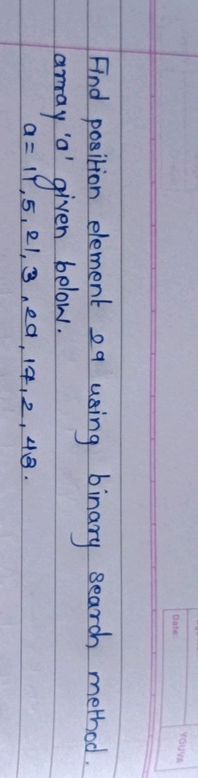 YOUVA
Date:
Find position element 29 using binary search method.
array 'a' given below.
a = 11, 5, 21, 3, 29, 17, 2, 43.